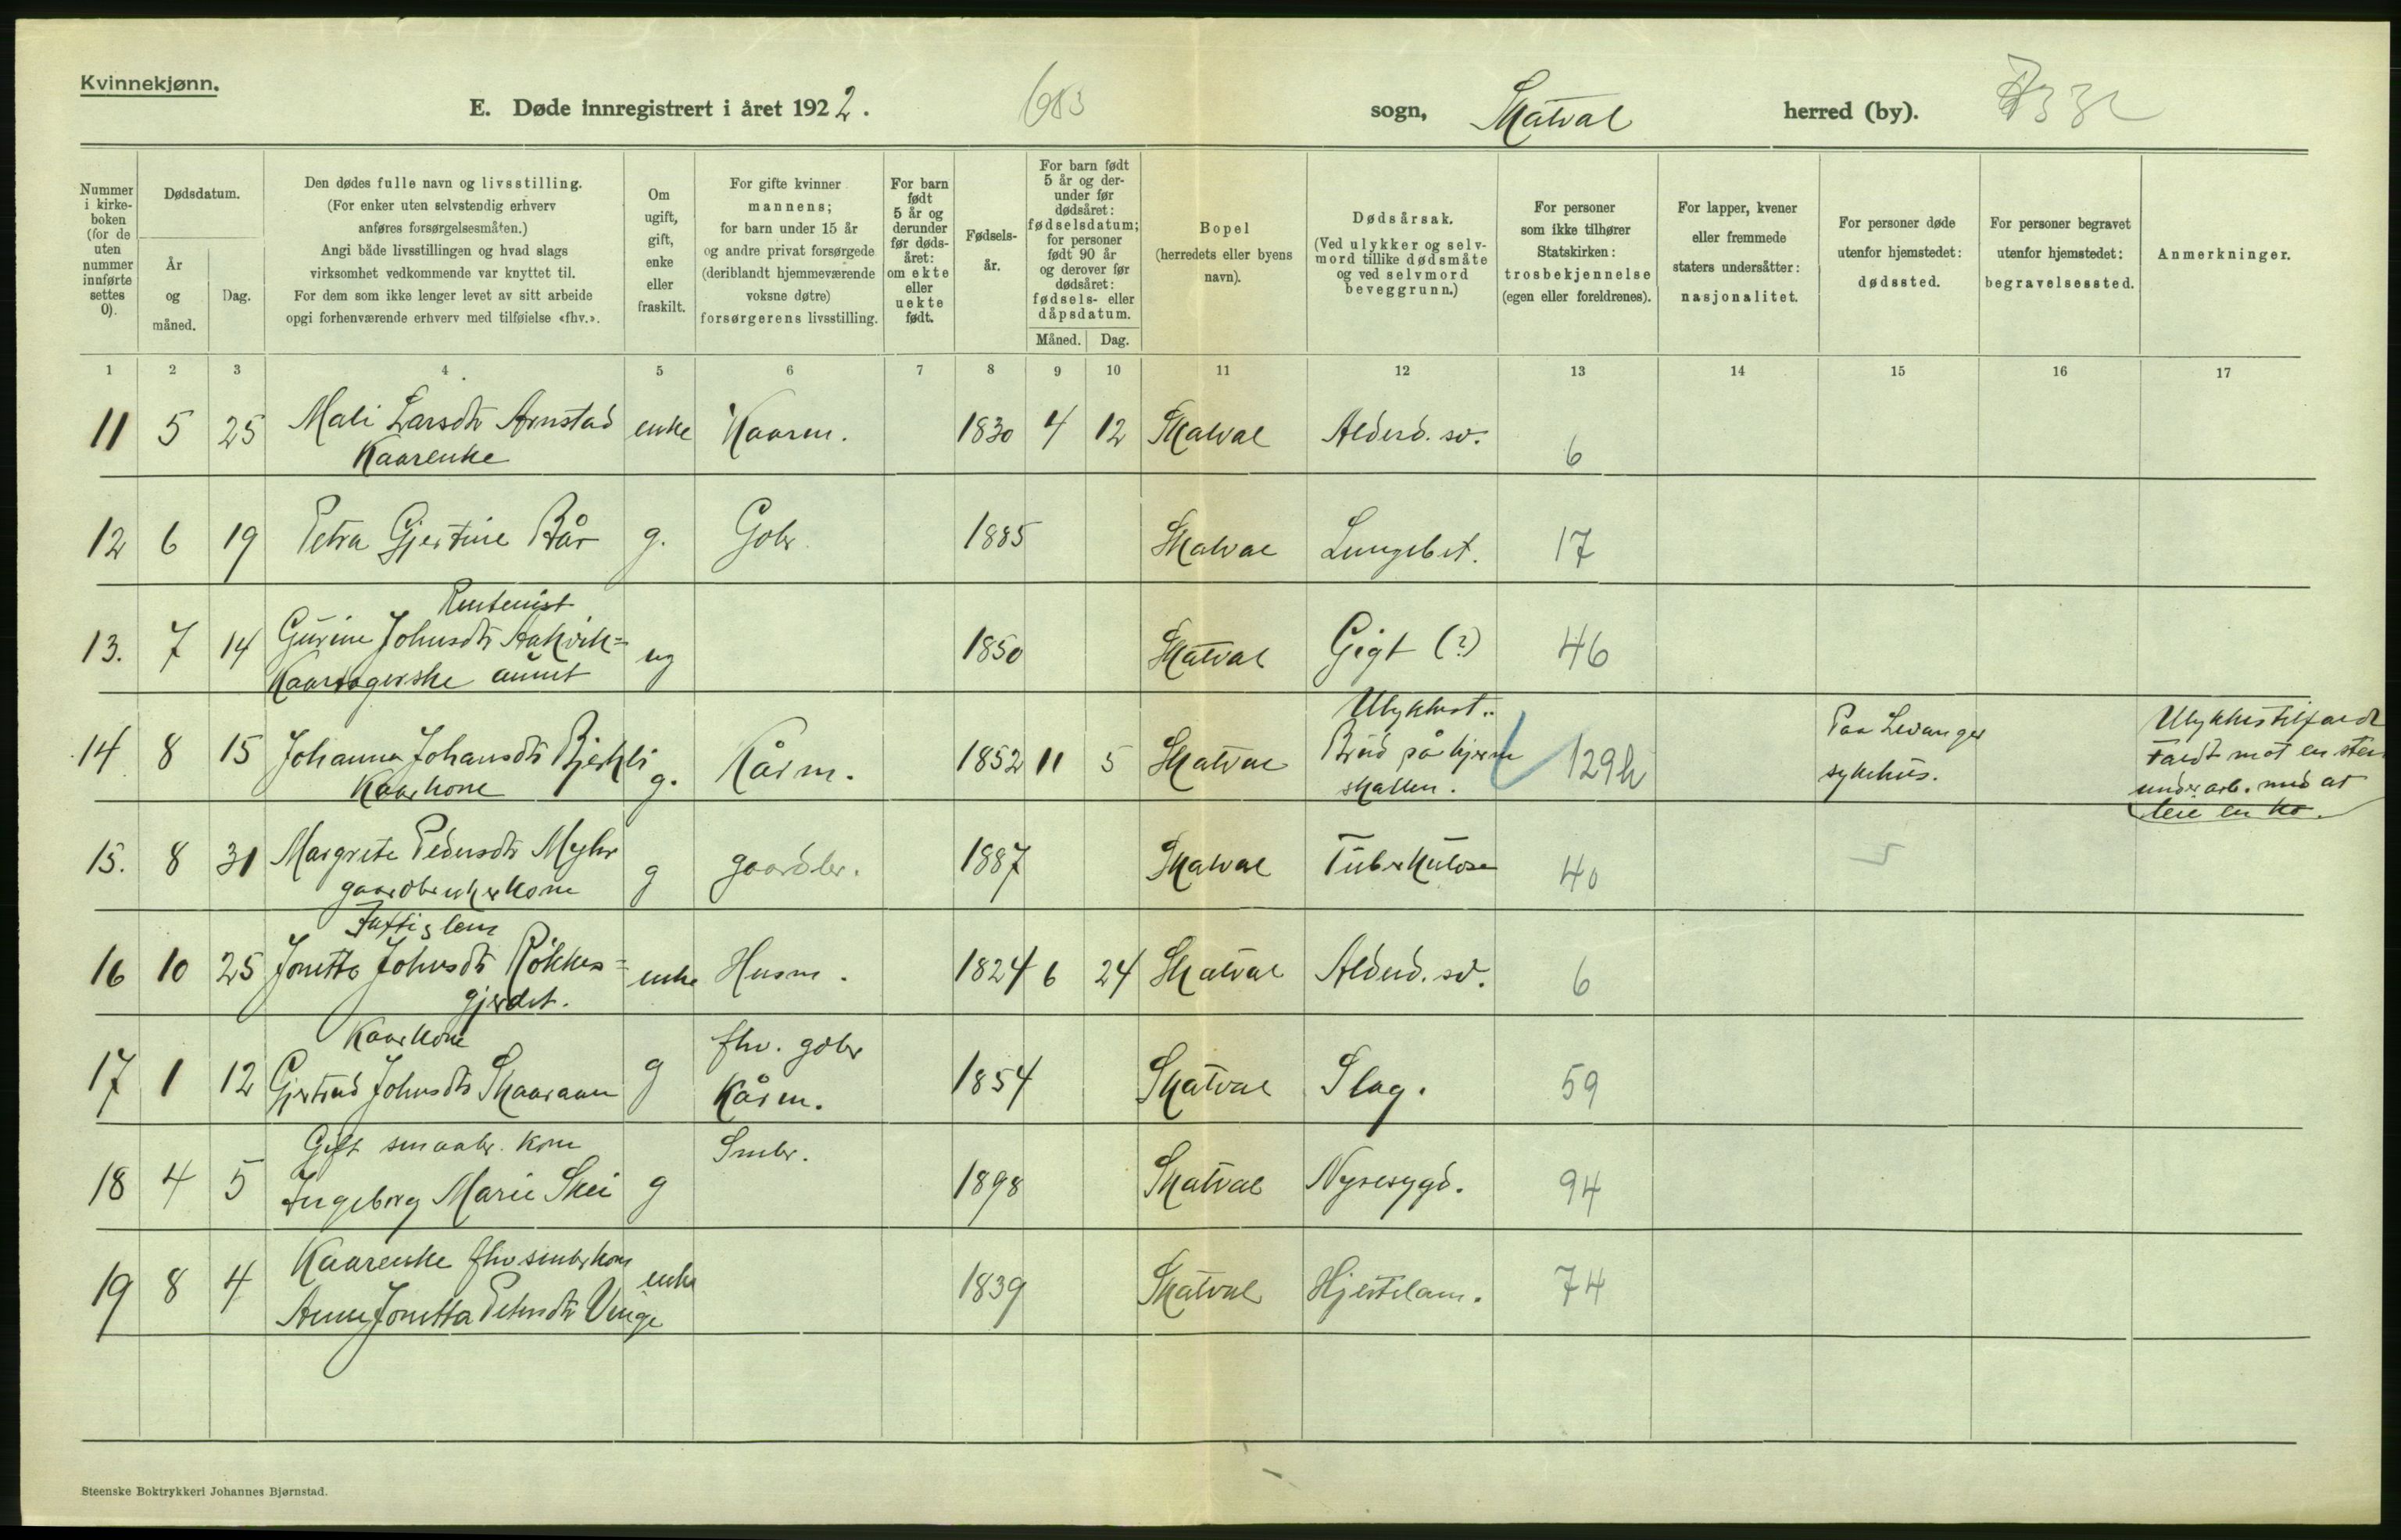 Kvinnekjønn.
E. Døde innregistrert i året 1922. 683 sogn, Skatval herred (by).
Nummer i kirkeboken (for de uten nummer innførte settes 0).
Dødsdatum.
År og måned.
Dag.
Den dødes fulle navn og livsstilling.
(For enker uten selvstendig erhverv
anføres forsørgelsesmåten.)
Angi både livsstillingen og hvad slags
virksomhet vedkommende var knyttet til.
For dem som ikke lenger levet av sitt arbeide
opgi forhenværende erhverv med tilføielse «fhv.».
Om
ugift,
gift,
enke
eller
fraskilt.
For gifte kvinner
mannens;
for barn under 15 år
og andre privat forsørgede
(deriblandt hjemmeværende
voksne døtre)
forsørgerens livsstilling.
For barn
født
5 år og
derunder
før døds-
året:
om ekte
eller
uekte
født.
Fødsels-
år.
For barn født
5 år og der-
under før
dødsåret:
fødselsdatum;
for personer
født 90 år
og derover før
dødsåret:
fødsels- eller
dåpsdatum.
Måned. Dag.
Bopel
(herredets eller byens
navn).
Dødsårsak.
(Ved ulykker og selv-
mord tillike dødsmåte
og ved selvmord
beveggrunn.)
For personer
som ikke tilhører
Statskirken:
trosbekjennelse
(egen eller foreldrenes).
For lapper, kvener
eller fremmede
staters undersåtter:
nasjonalitet.
For personer døde
utenfor hjemstedet:
dødssted.
For personer begravet
utenfor hjemstedet:
begravelsessted.
Anmerkninger.
1 2 3 4 5 6 7 8 9 10 11 12 13 14 15 16 17
11 5 25 Mali Larsdtr Arnstad enke Kaarm. 1830 4 12 Skatval Alderd. sv. 6
Kaarenke
12 6 19 Petra Gjertine Bår g. Gbr. 1885 Skatval Lungebet. 17
Rentenist
13. 7 14 Gurine Johnsdtr Aakvik= ug 1850 Skatval Gigt (?) 46
Kaartagerske aunet
Ulykkest.
14 8 15 Johanna Johansdtr Bjerkli g. Kårm. 1852 11 5 Skatval Brud på hjerne 129h Paa Levanger Ulykkestilfaldt
Kaarkone skallen. sykehus. faldt mot en sten
under arb. med at
leie en ko.
15. 8 31 Margrete Pedersdtr Myhr g gaardbr. 1887 Skatval Tuberkulose 40
gaardbrukerkone
Fattiglem
16 10 25 Jonetta Johnsdtr Røkkes= enke Husm. 1824 6 24 Skatval Alderd. sv. 6
gjerdet.
Kaarkone fhv. gdbr
17 1 12 Gjertrud Johnsdtr Skaaraan g Kårm. 1854 Skatval Slag. 59
Gift smaabr. kone Smbr.
18 4 5 Ingeborg Marie Skei g 1898 Skatval Nyresygd. 94
Kaarenke fhv smbrkone
19 8 4 Anne Jonetta Petersdtr Vinge enke 1839 Skatval Hjertelam. 74
Steenske Boktrykkeri Johannes Bjørnstad.